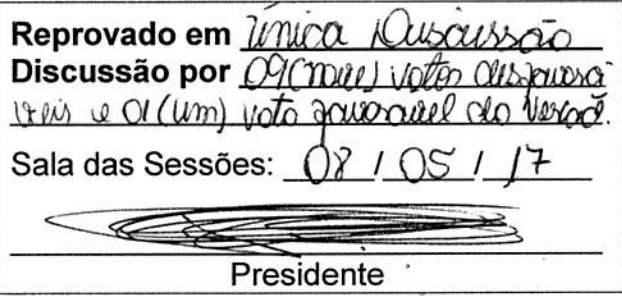 Reprovado em Única Discussão
Discussão por 09 (nove) votos desfavorá
veis e 01 (um) voto favorável do Veread.
Sala das Sessões: 08 / 05 / 17
Presidente